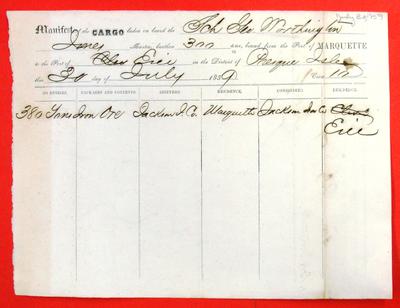 July 30/1859
Manifest of the CARGO laden on board the Sch Geo. Worthington
Jones Master, burthen 300 tons, bound from the Port of MARQUETTE
to the Port of Erie in the District of Presque Isle
this 30 day of July 1859
NO. ENTRIES. PACKAGES AND CONTENTS. SHIPPERS. RESIDENCE. CONSIGNEES. RESIDENCE.
380 Tons Iron Ore Jackson I. Co. Marquette Jackson Iron Co
Erie